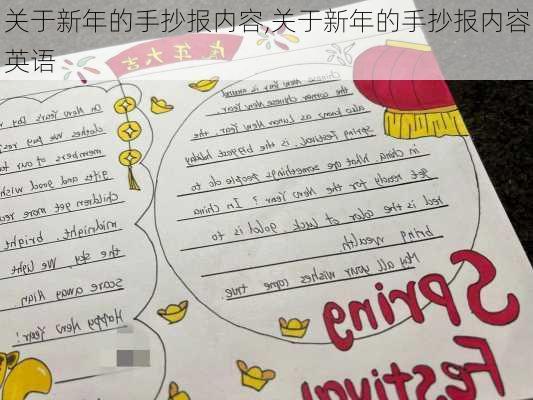 关于新年的手抄报内容,关于新年的手抄报内容
英语
虎年大吉
Chinese New Year is around
the corner Chinese New Year,
also known as Lunar New Year, the
Spring Festival, is the biggest holiday
in China. What are somethings people do to
get ready for the New Year? In China
red is the color of luck, gold is to
bring wealth
My all your wishes come true.
On New Year's Day
clothes. We pay
members of our
gifts and good wish
Children get more
midnight, bright
the sky. We light
scare away Nian
Happy New Year!
Spring
Festival